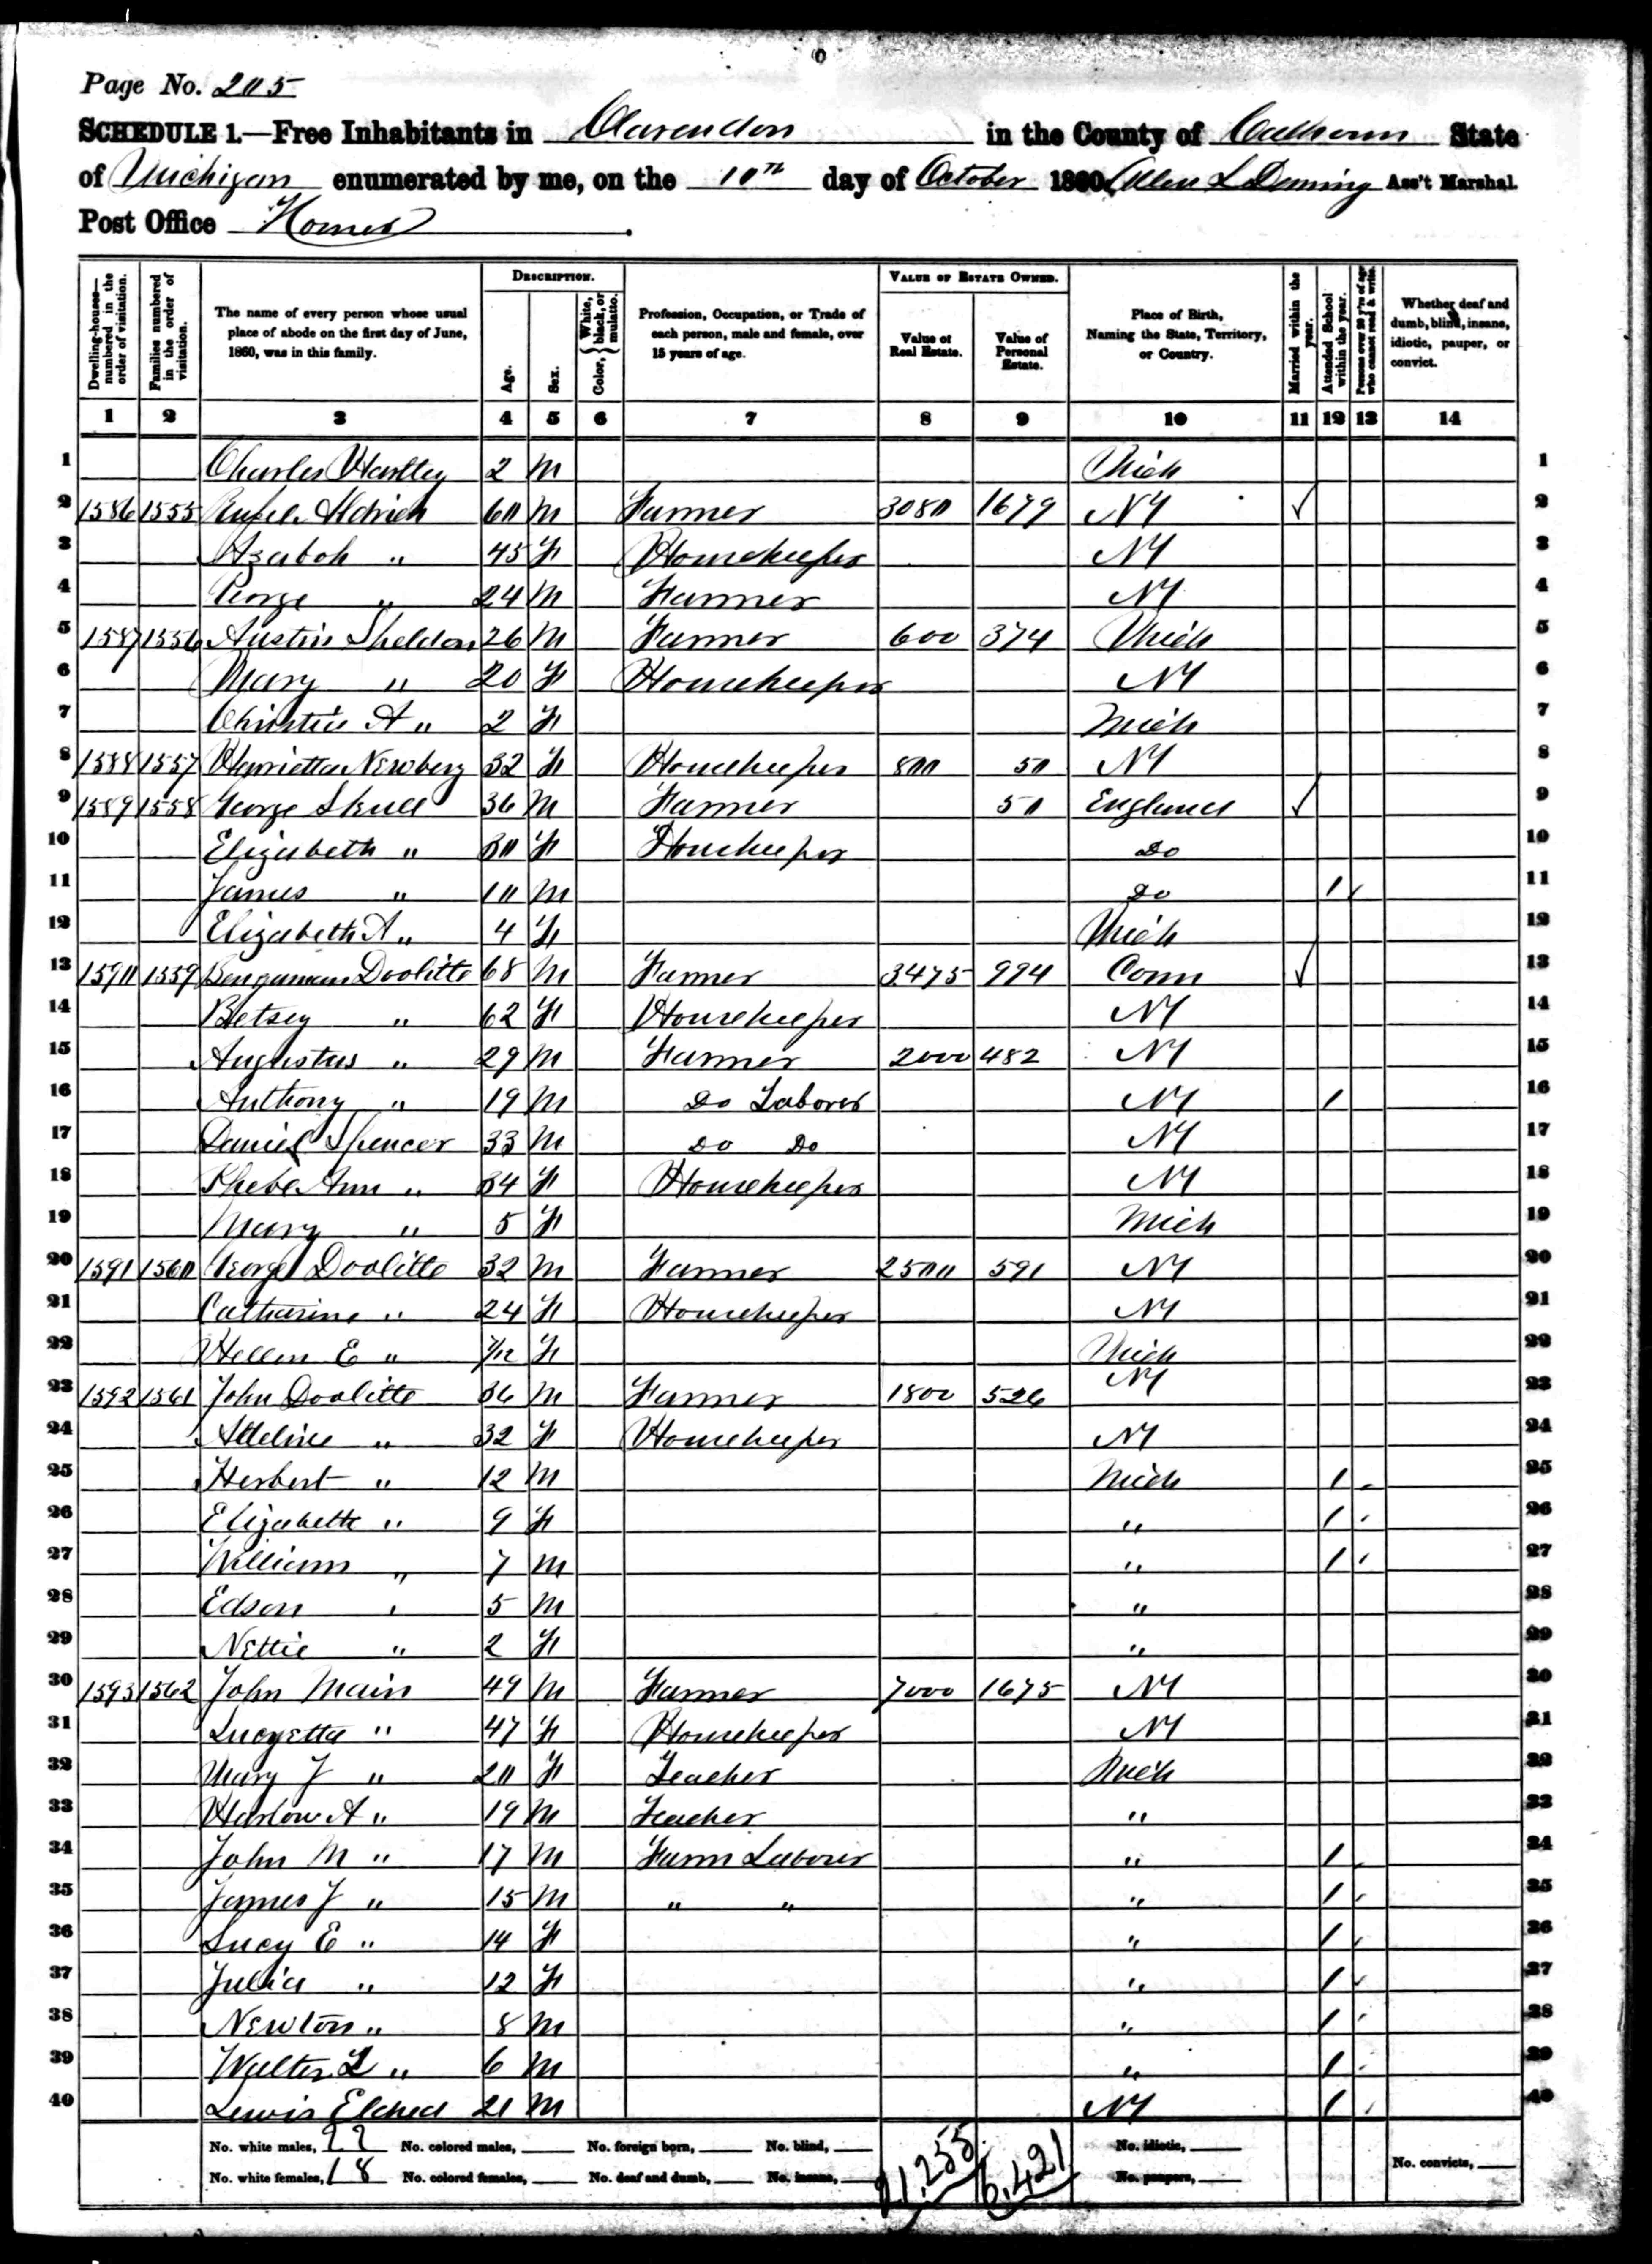 Page No. 205
SCHEDULE 1.—Free Inhabitants in Clarendon in the County of Calhoun State
of Michigan enumerated by me, on the 10th day of October 1860. Allen L Deming Ass't Marshal.
Post Office Homer.
Dwelling-houses—numbered in the order of visitation.
Families numbered in the order of visitation.
The name of every person whose usual place of abode on the first day of June, 1860, was in this family.
DESCRIPTION.
Age.
Sex.
Color, { White, black, or mulatto.
Profession, Occupation, or Trade of each person, male and female, over 15 years of age.
VALUE OF ESTATE OWNED.
Value of Real Estate.
Value of Personal Estate.
Place of Birth, Naming the State, Territory, or Country.
Married within the year.
Attended School within the year.
Persons over 20 y'rs of age who cannot read & write.
Whether deaf and dumb, blind, insane, idiotic, pauper, or convict.
1 2 3 4 5 6 7 8 9 10 11 12 13 14
1 Charles Hartley 2 M Mich 1
2 1586 1555 Aldrich 60 M Farmer 3080 1679 NY ✓ 2
3 " 45 F Housekeeper NY 3
4 George " 24 M Farmer NY 4
5 1587 1556 Austin Sheldon 26 M Farmer 600 374 Mich 5
6 Mary " 20 F Housekeeper NY 6
7 Christia A " 2 F Mich 7
8 1588 1557 Henrietta Newberg 32 F Housekeeper 800 50 NY 8
9 1589 1558 George Skull 36 M Farmer 50 England ✓ 9
10 Elizabeth " 30 F Housekeeper Do 10
11 James " 10 M Do 1 11
12 Elizabeth A " 4 F Mich 12
13 1590 1559 Bengaman Doolitte 68 M Farmer 3475 994 Conn ✓ 13
14 Betsey " 62 F Housekeeper NY 14
15 Augustus " 29 M Farmer 2000 482 NY 15
16 Anthony " 19 M Do Laborer NY 1 16
17 Daniel Spencer 33 M Do Do NY 17
18 Phebe Ann " 34 F Housekeeper NY 18
19 Mary " 5 F Mich 19
20 1591 1560 George Doolitte 32 M Farmer 2500 591 NY 20
21 Catharine " 24 F Housekeeper NY 21
22 Hellen E " 7/12 F Mich 22
23 1592 1561 John Doolitte 36 M Farmer 1800 526 NY 23
24 Adeline " 32 F Housekeeper NY 24
25 Herbert " 12 M Mich 1 25
26 Elizabeth " 9 F " 1 26
27 William " 7 M " 1 27
28 Edson " 5 M " 28
29 Nettie " 2 F " 29
30 1593 1562 John Main 49 M Farmer 7000 1675 NY 30
31 Lucyetta " 47 F Housekeeper NY 31
32 Mary J " 20 F Teacher Mich 32
33 Harlow A " 19 M Teacher " 33
34 John M " 17 M Farm Laborer " 1 34
35 James J " 15 M " " " 1 35
36 Lucy E " 14 F " 1 36
37 Julia " 12 F " 1 37
38 Newton " 8 M " 1 38
39 Walter L " 6 M " 1 39
40 Lewis Eldred 21 M NY 1 40
No. white males, 22 No. colored males, No. foreign born, No. blind, 21,255 6,421 No. idiotic,
No. white females, 18 No. colored females, No. deaf and dumb, No. insane, No. paupers, No. convicts,